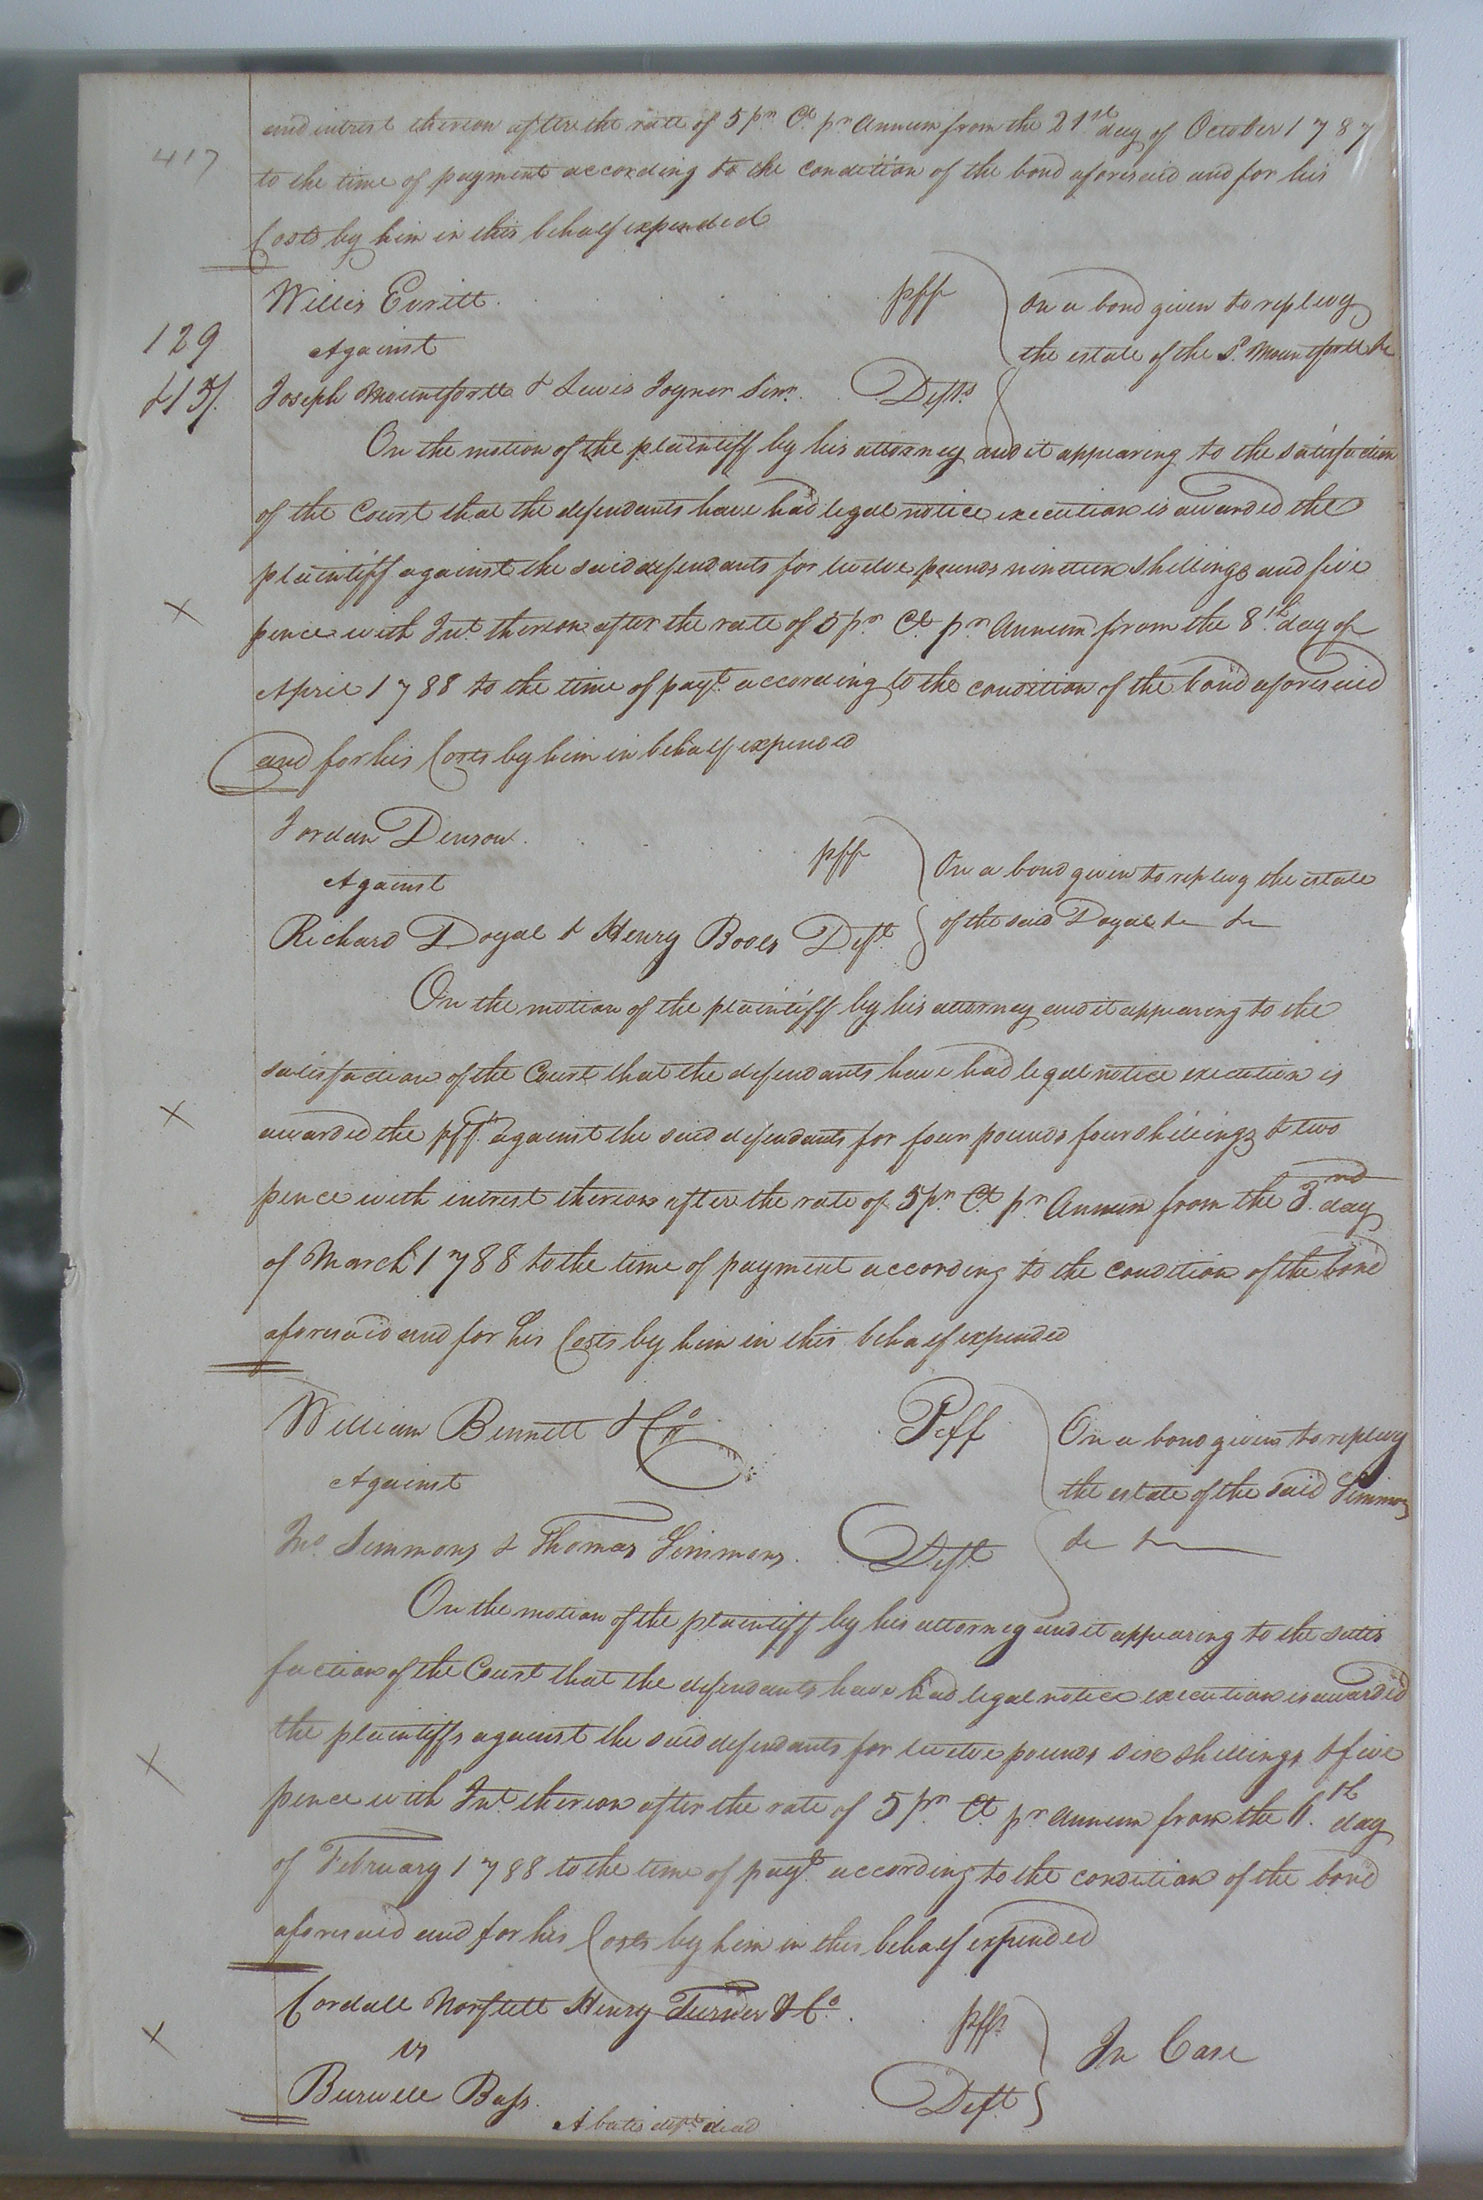 and intrest thereon after the rate of 5 pr. Ct. pr Annum from the 21st day of October 1787
417
to the time of payment according to the condition of the bond aforesaid and for his
Costs by him in this behalf expended
Willis Evritt pff On a bond given to replevy
129 Against the estate of the Sd. Mountfortt &c
Joseph Mountfortt & Lewis Joyner Senr. Defts
On the motion of the plaintiff by his attorney and it appearing to the satisfaction
of the Court that the defendants have had legal notice execution is awarded the
plaintiff against the said defendants for twelve pounds nineteen shillings and five
pence with Int. thereon after the rate of 5 pr. Ct. pr Annum from the 8th. day of
April 1788 to the time of payt. according to the condition of the bond aforesaid
and for his Costs by him in behalf expended
Jordan Denson pff On a bond given to replevy the estate
Against
Richard Doyal & Henry Booes Deft of the said Doyal &c &c
On the motion of the plaintiff by his attorney and it appearing to the
satisfaction of the Court that the defendants have had legal notice execution is
awarded the pff. against the said defendants for four pounds four shillings & two
pence with intrest thereon after the rate of 5 pr. Ct. pr Annum from the 3nd. day
of March 1788 to the time of payment according to the condition of the bond
aforesaid and for his Costs by him in this behalf expended
William Bennett & Co Peff On a bond given to replevy
Against the estate of the said Simmons
Jno. Simmons & Thomas Simmons. Deft &c &c
On the motion of the plaintiff by his attorney and it appearing to the satis
faction of the Court that the defendants have had legal notice execution is awarded
the plaintiffs against the said defendants for twelve pounds six shillings & five
pence with Int. thereon after the rate of 5 pr Ct. pr Annum from the 6th. day
of February 1788 to the time of payt. according to the condition of the bond
aforesaid and for his Costs by him in this behalf expended
Cordall Norflett Henry Turner & Co. pffs
vs In Case
Burwell Bass. Deft
Abates deft. dead